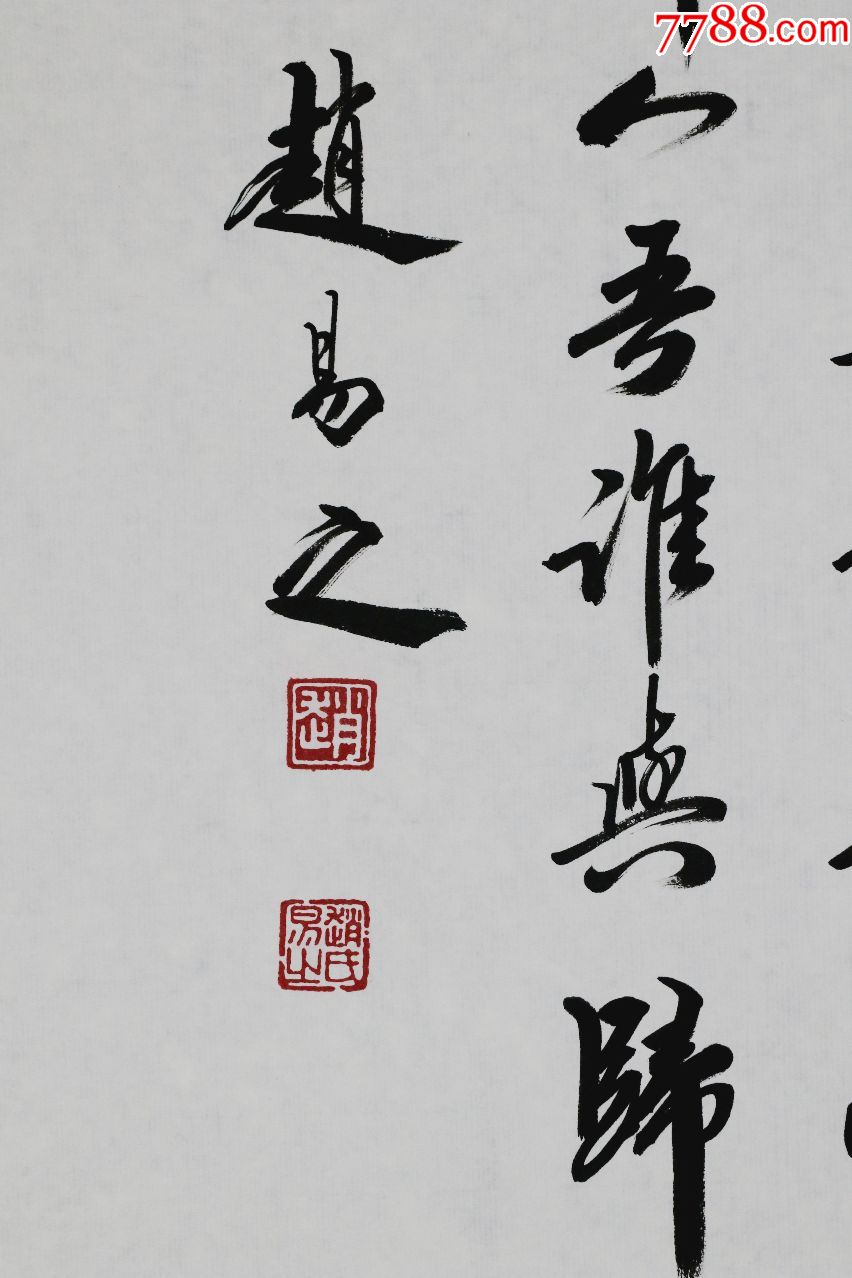 7788.com
人吾誰與歸
趙易之
趙
趙氏
易之